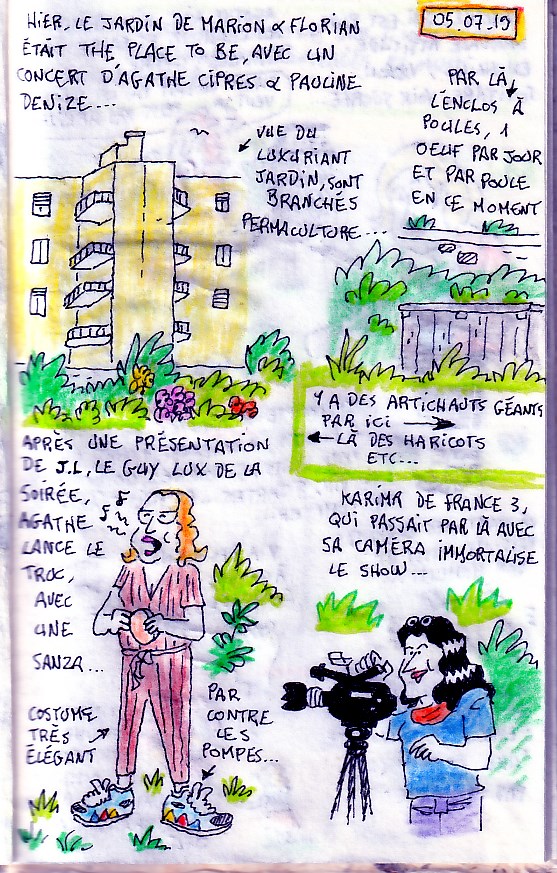 HIER, LE JARDIN DE MARION & FLORIAN
ÉTAIT THE PLACE TO BE, AVEC UN
CONCERT D'AGATHE CIPRES & PAULINE
DENIZE...
05.07.19
VUE DU
LUXURIANT
JARDIN, SONT
BRANCHÉS
PERMACULTURE...
PAR LÀ
L'ENCLOS À
POULES, 1
OEUF PAR JOUR
ET PAR POULE
EN CE MOMENT
Y A DES ARTICHAUTS GÉANTS
PAR ICI
LÀ DES HARICOTS
ETC...
APRÈS UNE PRÉSENTATION
DE J.L, LE GUY LUX DE LA
SOIRÉE,
AGATHE
LANCE LE
TRUC,
AVEC
UNE
SANZA...
KARIMA DE FRANCE 3,
QUI PASSAIT PAR LÀ AVEC
SA CAMÉRA IMMORTALISE
LE SHOW...
COSTUME
TRÈS
ÉLÉGANT
PAR
CONTRE
LES
POMPES...